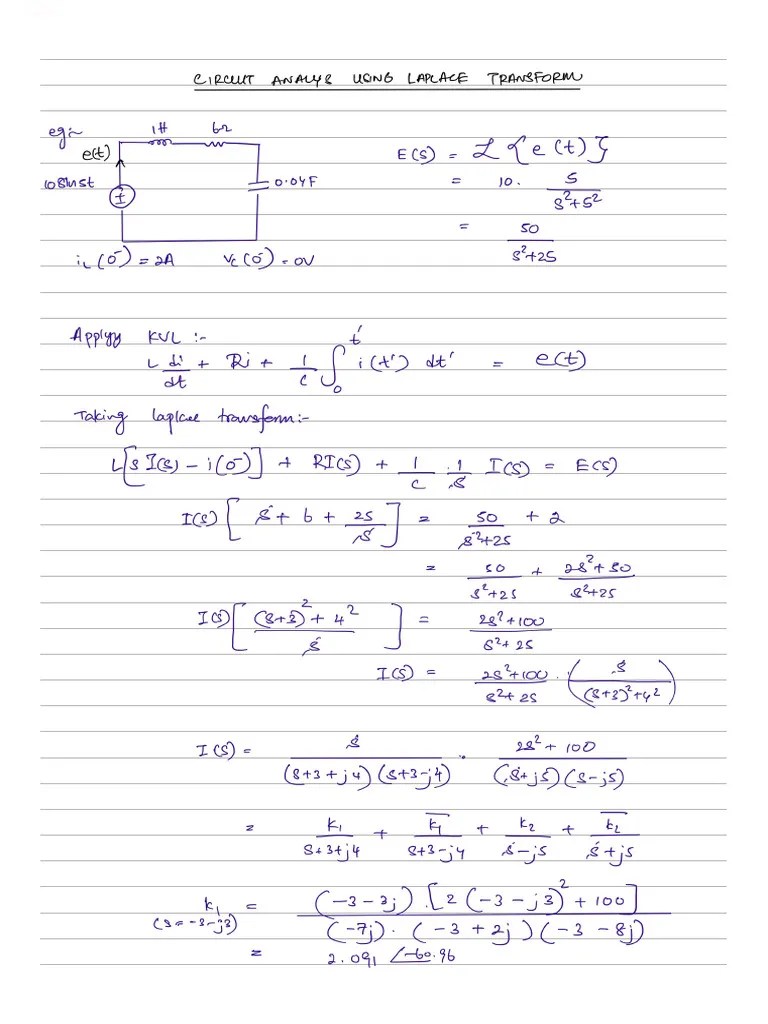 CIRCUIT ANALYS USING LAPLACE TRANSFORM
eg:~
1H 6Ω
e(t)
10sin5t
0.04F
i_L(0⁻) = 2A V_C(0⁻) = 0V
E(s) = ℒ{e(t)}
= 10. 5/(s²+5²)
= 50/(s²+25)
Applyy KVL :-
L di/dt + Ri + 1/C ∫₀^t' i(t') dt' = e(t)
Taking laplace transform:-
L[s I(s) – i(0⁻)] + RI(s) + 1/C . 1/s I(s) = E(s)
I(s) [s + 6 + 25/s] = 50/(s²+25) + 2
= 50/(s²+25) + (2s²+50)/(s²+25)
I(s) [((s+3)² + 4²)/s] = (2s²+100)/(s²+25)
I(s) = (2s²+100)/(s²+25) . (s/((s+3)²+4²))
I(s) = s/((s+3+j4)(s+3-j4)) . (2s²+100)/((s+j5)(s-j5))
= K₁/(s+3+j4) + K̅₁/(s+3-j4) + K₂/(s-j5) + K̅₂/(s+j5)
K₁ = (-3-3j).[2(-3-j3)²+100]/((-7j).(-3+2j)(-3-8j))
(s=-3-j3)
= 2.091 ∠-60.96